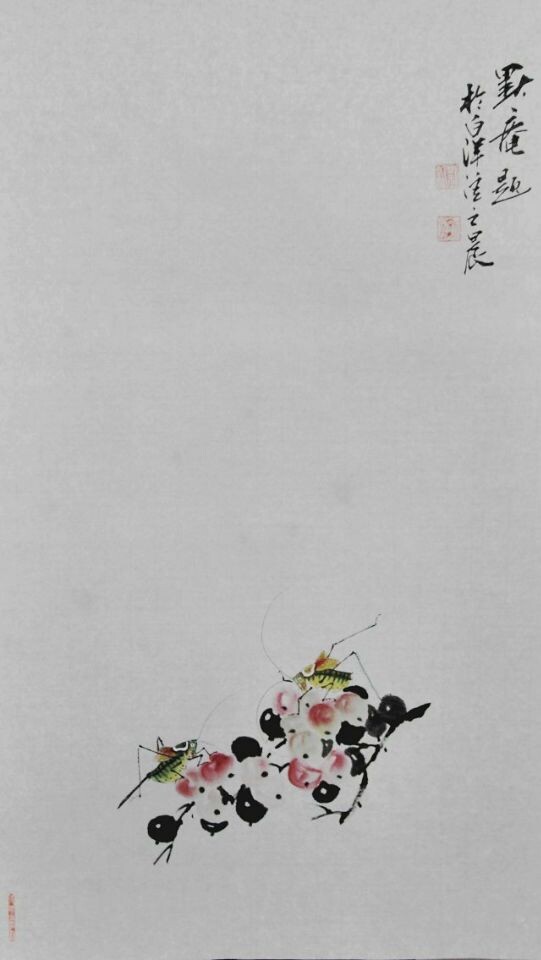 默庵题
於白洋淀之晨